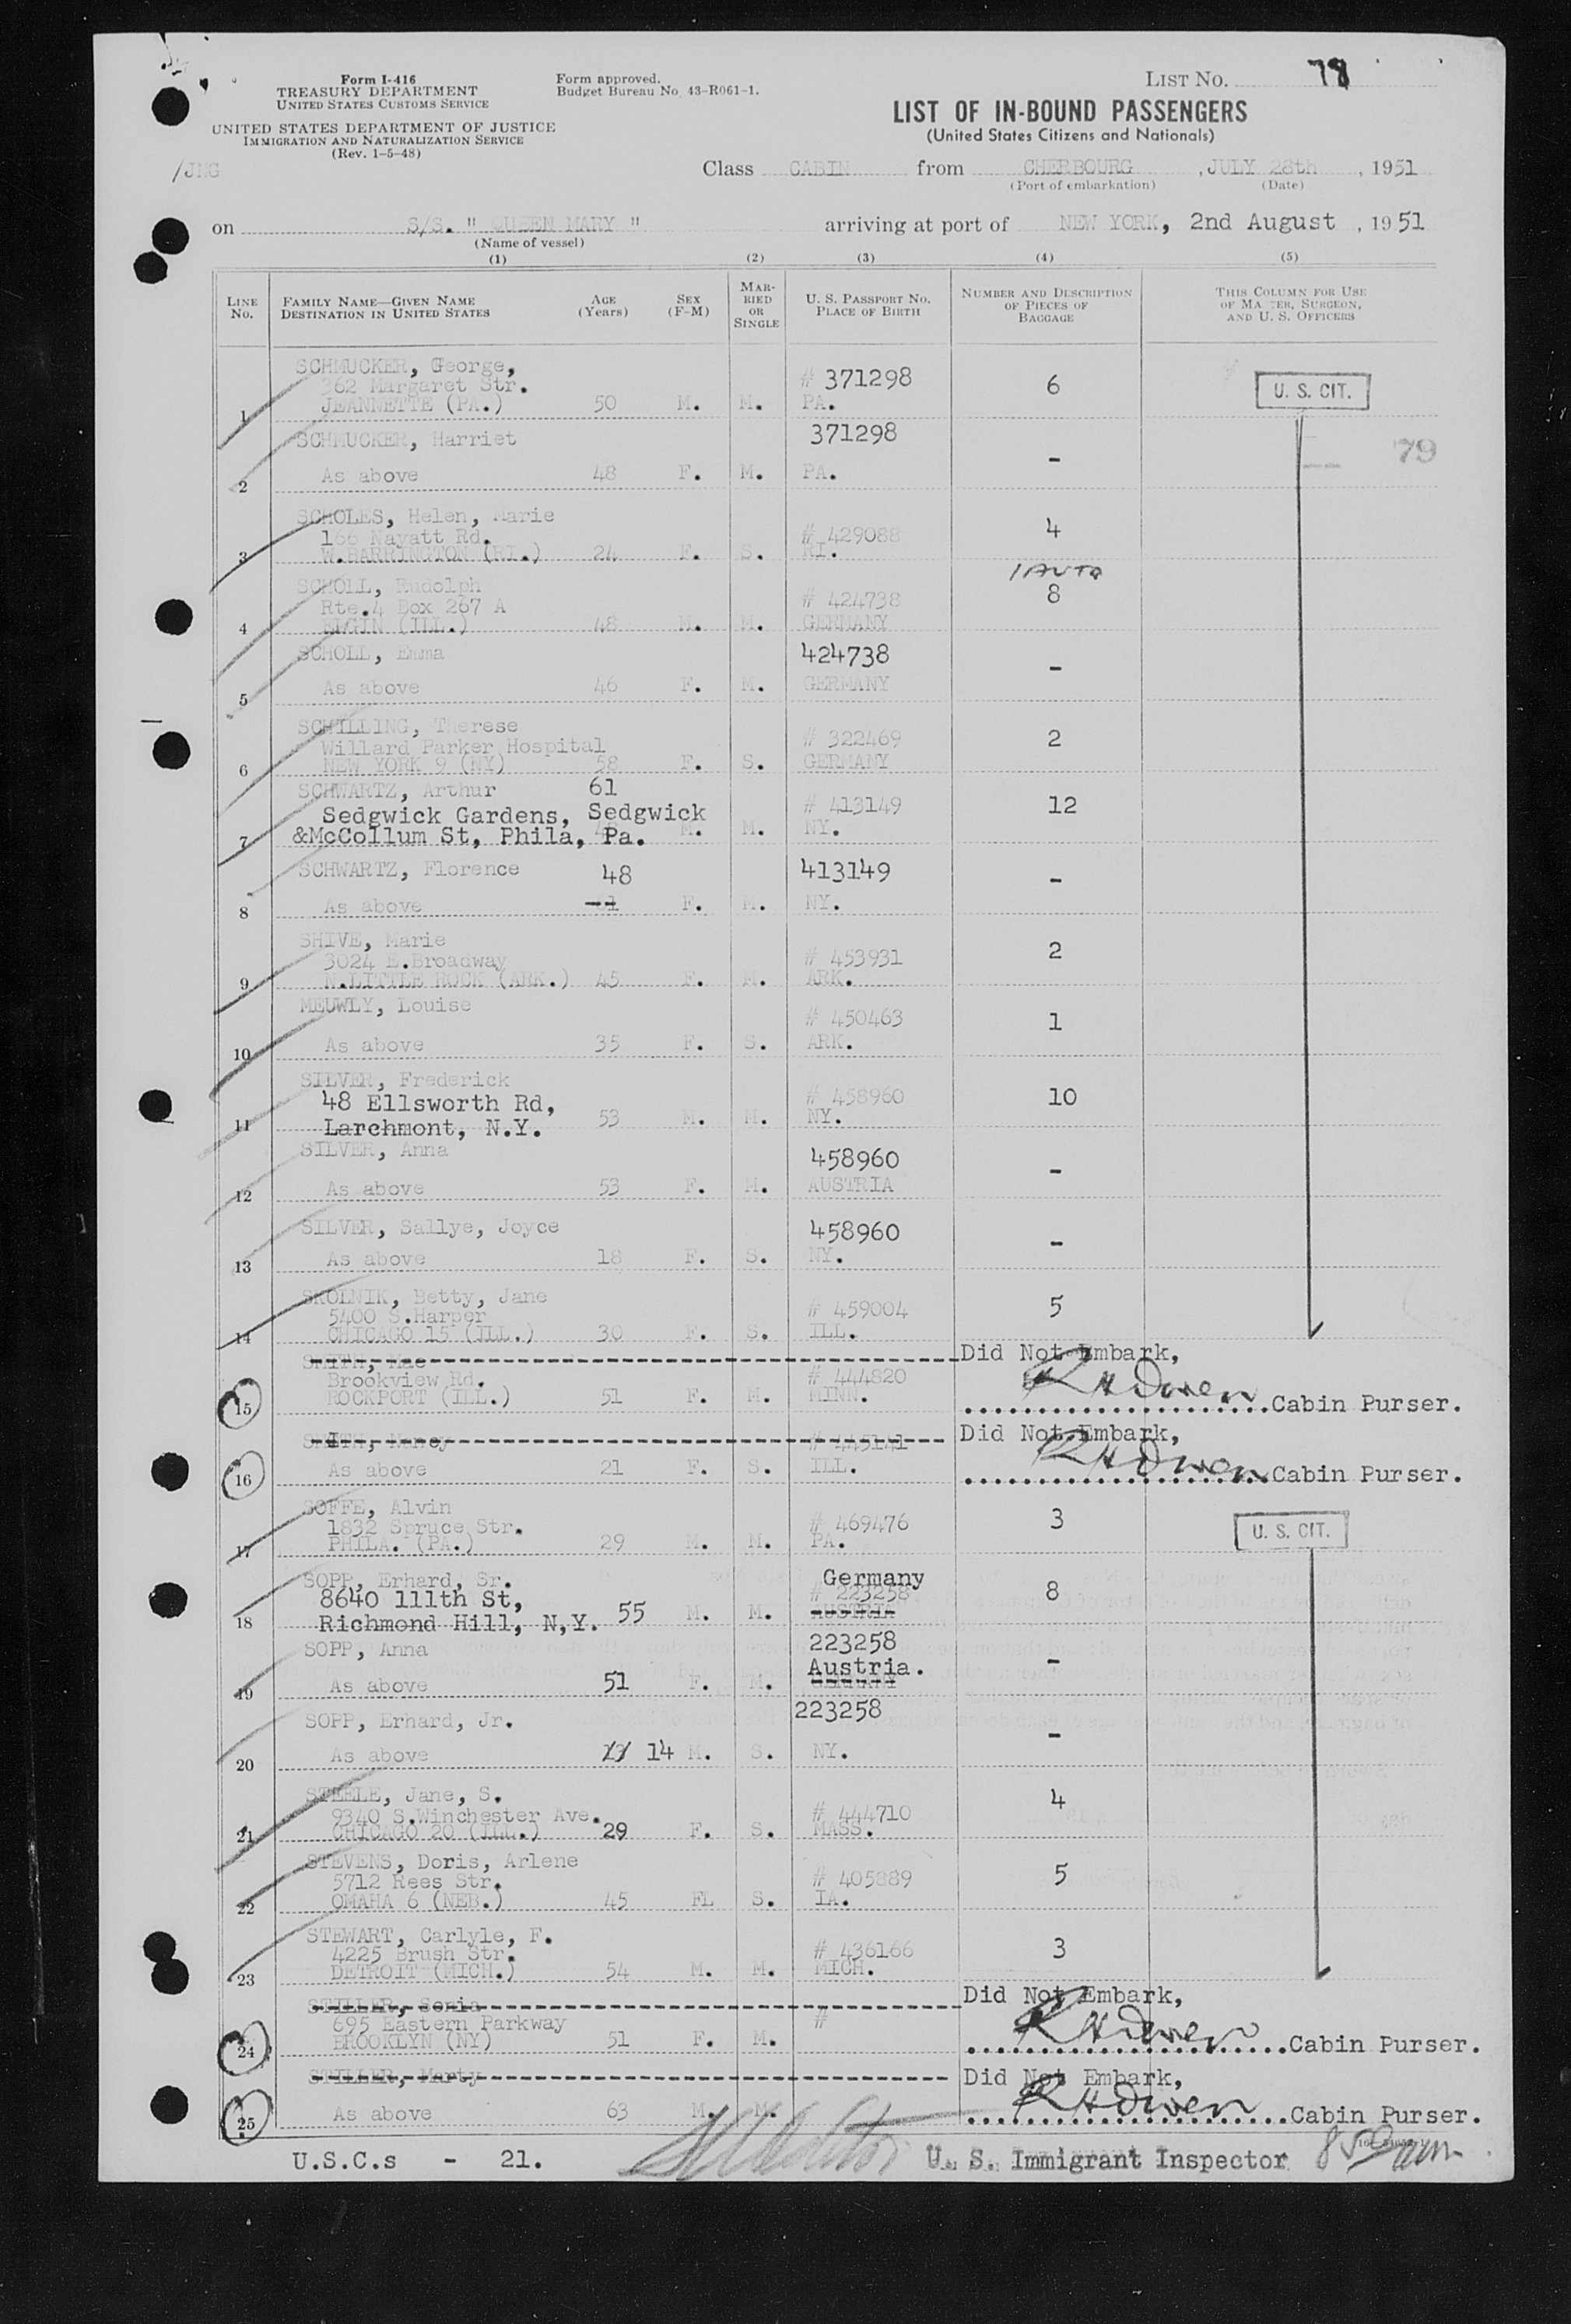 Form I-416
TREASURY DEPARTMENT
UNITED STATES CUSTOMS SERVICE
UNITED STATES DEPARTMENT OF JUSTICE
IMMIGRATION AND NATURALIZATION SERVICE
(Rev. 1-5-48)
Form approved.
Budget Bureau No. 43-R061-1.
LIST No. 78
LIST OF IN-BOUND PASSENGERS
(United States Citizens and Nationals)
/JMG
Class CABIN from CHERBOURG, JULY 28th, 1951
(Port of embarkation) (Date)
on S/S. " QUEEN MARY " arriving at port of NEW YORK, 2nd August, 1951
(Name of vessel)
(1) (2) (3) (4) (5)
LINE No. FAMILY NAME—GIVEN NAME DESTINATION IN UNITED STATES AGE (Years) SEX (F-M) MARRIED OR SINGLE U. S. PASSPORT No. PLACE OF BIRTH NUMBER AND DESCRIPTION OF PIECES OF BAGGAGE THIS COLUMN FOR USE OF MASTER, SURGEON, AND U. S. OFFICERS
SCHMUCKER, George,
362 Margaret Str. # 371298 6 U. S. CIT.
1 JEANNETTE (PA.) 50 M. M. PA.
SCHMUCKER, Harriet 371298 - 79
2 As above 48 F. M. PA.
SCHOLES, Helen, Marie
166 Nayatt Rd. # 429088 4
3 W.BARRINGTON (RI.) 24 F. S. RI.
1 AUTO
SCHOLL, Rudolph
Rte.4 Box 267 A # 424738 8
4 ELGIN (ILL.) 48 M. M. GERMANY
SCHOLL, Emma 424738 -
5 As above 46 F. M. GERMANY
SCHILLING, Therese
Willard Parker Hospital # 322469 2
6 NEW YORK 9 (NY) 58 F. S. GERMANY
SCHWARTZ, Arthur 61
Sedgwick Gardens, Sedgwick # 413149 12
7 &McCollum St, Phila, Pa. M. M. NY.
SCHWARTZ, Florence 48 413149 -
8 As above F. M. NY.
SHIVE, Marie
3024 E.Broadway # 453931 2
9 N.LITTLE ROCK (ARK.) 45 F. M. ARK.
MEUWLY, Louise # 450463 1
10 As above 35 F. S. ARK.
SILVER, Frederick
48 Ellsworth Rd, # 458960 10
11 Larchmont, N.Y. 53 M. M. NY.
SILVER, Anna 458960 -
12 As above 53 F. M. AUSTRIA
SILVER, Sallye, Joyce 458960 -
13 As above 18 F. S. NY.
SKOLNIK, Betty, Jane
5400 S.Harper # 459004 5
14 CHICAGO 15 (ILL.) 30 F. S. ILL.
SMITH, Mae Did Not Embark,
Brookview Rd. # 444820 RHOwen
15 ROCKPORT (ILL.) 51 F. M. MINN. Cabin Purser.
SMITH, Nancy # 445141 Did Not Embark,
16 As above 21 F. S. ILL. RHOwen Cabin Purser.
SOFFE, Alvin
1832 Spruce Str. # 469476 3 U. S. CIT.
17 PHILA. (PA.) 29 M. M. PA.
SOPP, Erhard, Sr. Germany
8640 111th St, # 223258 8
18 Richmond Hill, N,Y. 55 M. M. AUSTRIA
SOPP, Anna 223258
Austria. -
19 As above 51 F. M. GERMANY
SOPP, Erhard, Jr. 223258 -
20 As above 13 14 M. S. NY.
STEELE, Jane, S.
9340 S.Winchester Ave. # 444710 4
21 CHICAGO 20 (ILL.) 29 F. S. MASS.
STEVENS, Doris, Arlene
5712 Rees Str. # 405889 5
22 OMAHA 6 (NEB.) 45 FL S. IA.
STEWART, Carlyle, F.
4225 Brush Str. # 436166 3
23 DETROIT (MICH.) 54 M. M. MICH.
STILLER, Sonia Did Not Embark,
695 Eastern Parkway # RHOwen
24 BROOKLYN (NY) 51 F. M. Cabin Purser.
STILLER, Morty Did Not Embark,
25 As above 63 M. M. RHOwen Cabin Purser.
U.S.C.s - 21. U. S. Immigrant Inspector